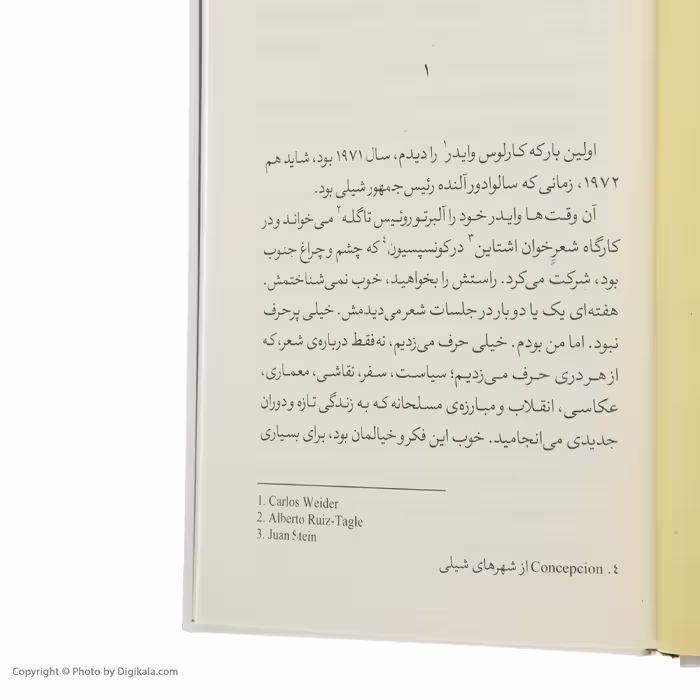 ۱
اولین بار که کارلوس وایدر۱ را دیدم، سال ۱۹۷۱ بود، شاید هم
۱۹۷۲، زمانی که سالوادور آلنده رئیس‌جمهور شیلی بود.
آن وقت‌ها وایدر خود را آلبرتو روئیس تاگله۲ می‌خواند و در
کارگاه شعرِ خوان اشتاین۳ در کونسپسیون۴ که چشم و چراغ جنوب
بود، شرکت می‌کرد. راستش را بخواهید، خوب نمی‌شناختمش.
هفته‌ای یک یا دو بار در جلسات شعر می‌دیدمش. خیلی پرحرف
نبود. اما من بودم. خیلی حرف می‌زدیم، نه فقط درباره‌ی شعر، که
از هر دری حرف می‌زدیم؛ سیاست، سفر، نقاشی، معماری،
عکاسی، انقلاب و مبارزه‌ی مسلحانه که به زندگی تازه و دوران
جدیدی می‌انجامید. خوب این فکر و خیالمان بود، برای بسیاری
1. Carlos Weider
2. Alberto Ruiz-Tagle
3. Juan Stein
۴. Concepcion از شهرهای شیلی
Copyright © Photo by Digikala.com